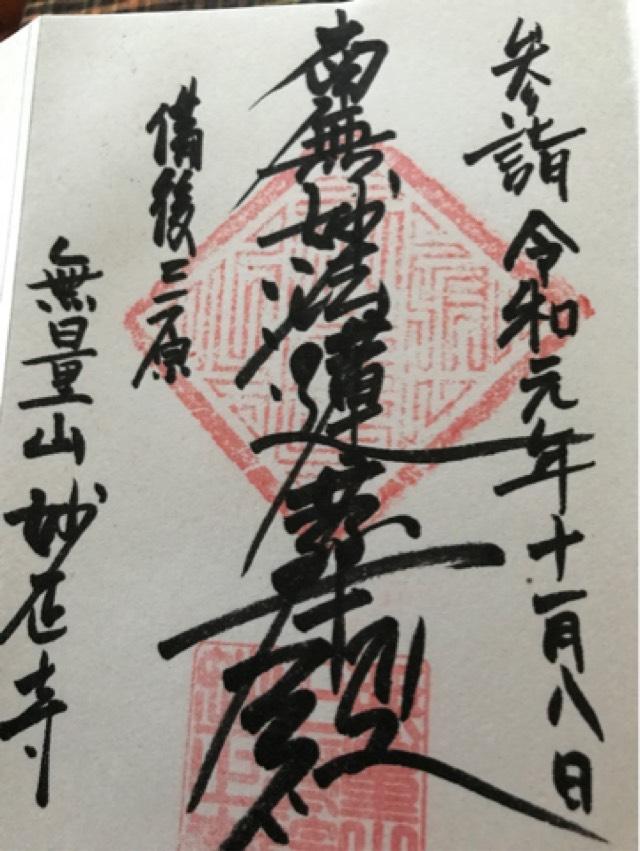 参詣 令和元年十一月八日
南無妙法蓮華経
備後三原
無量山妙正寺